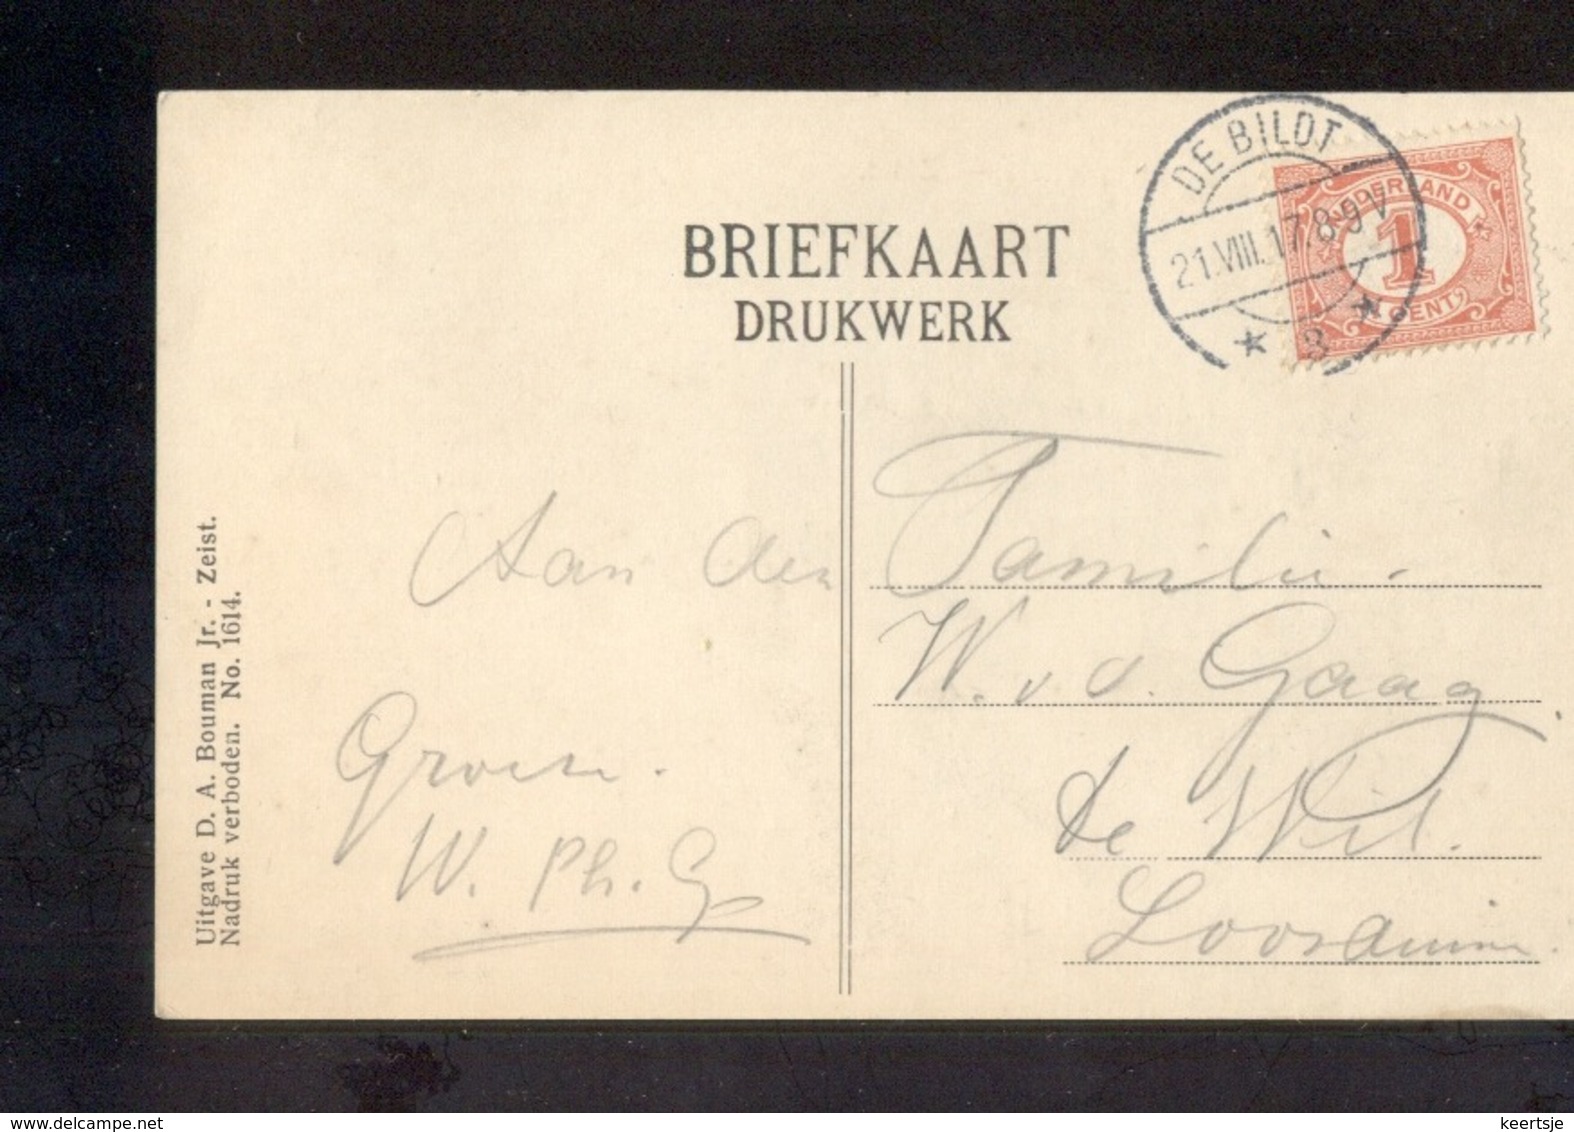 BRIEFKAART
DRUKWERK
DE BILDT
21.VIII.17.8-9V
3
NEDERLAND
1
CENT
Aan den Familie.
W. v. d. Gaag
de Wil.
Loosduinen
Groeten.
W. Ph. G
Uitgave D. A. Bouman Jr. - Zeist.
Nadruk verboden. No. 1614.
delcampe.net
keertsje